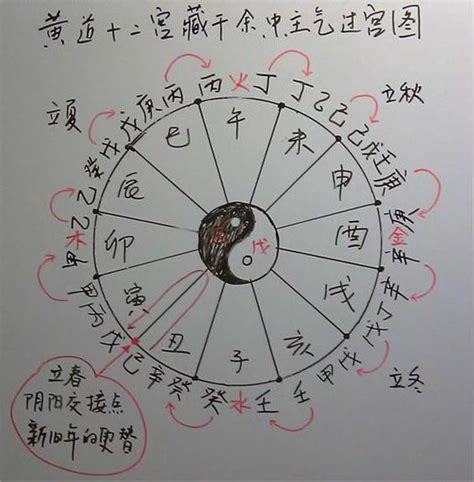 黄道十二宫藏干余中主气过宫图
立夏
立秋
戊庚丙
丙火丁
丁乙己
己戊壬庚
金辛
辛丁戊
戊甲壬
壬水癸
癸辛己
戊丙甲
甲木乙
乙癸戊
巳
午
未
申
酉
戌
亥
子
丑
寅
卯
辰
戊
立冬
立春
阴阳交接点
新旧年的更替